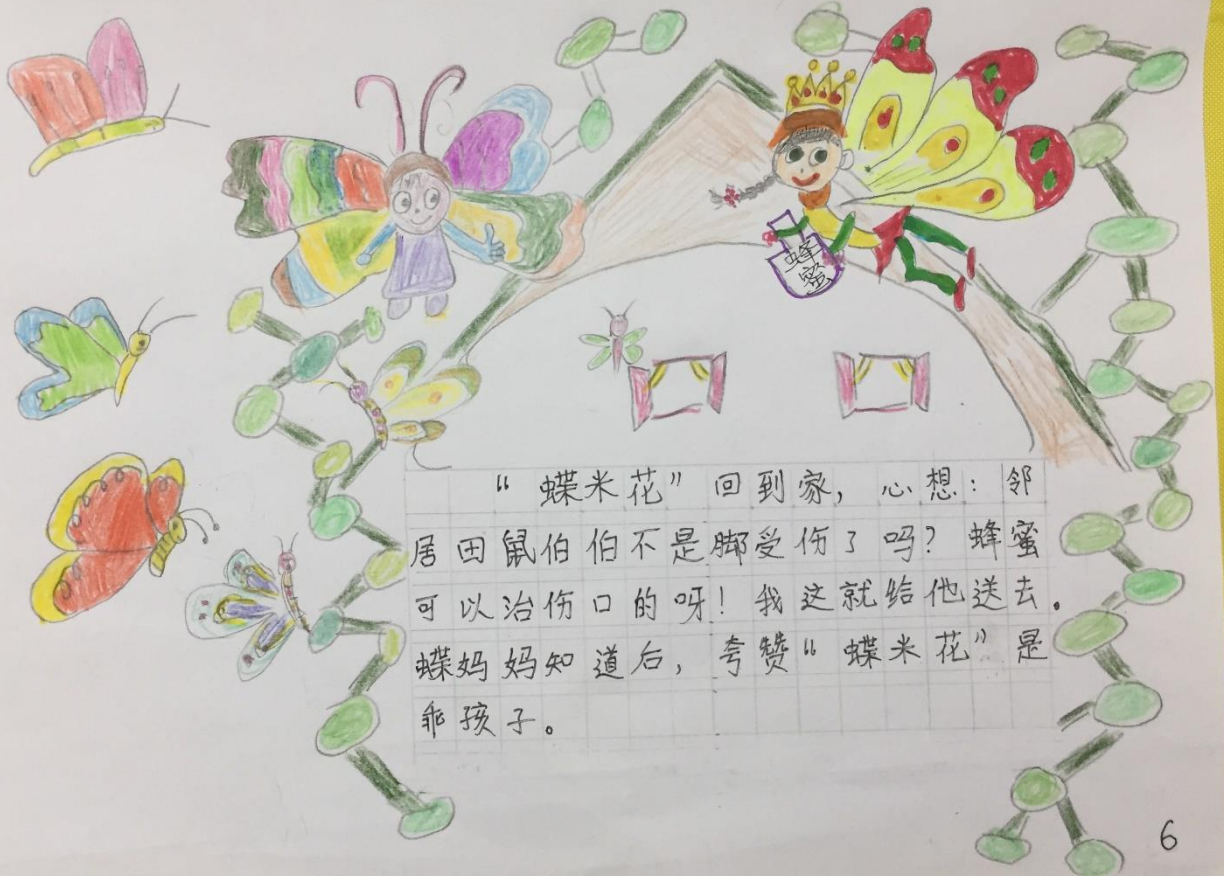 蜂
蜜
“蝶米花”回到家，心想：邻
居田鼠伯伯不是脚受伤了吗？蜂蜜
可以治伤口的呀！我这就给他送去。
蝶妈妈知道后，夸赞“蝶米花”是
乖孩子。
6